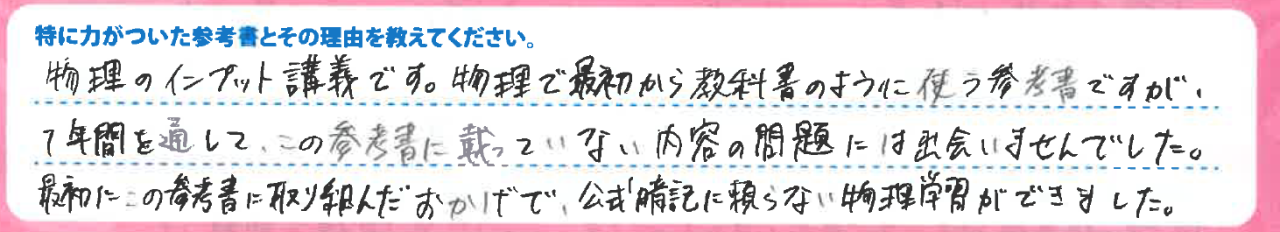 特に力がついた参考書とその理由を教えてください。
物理のインプット講義です。物理で最初から教科書のように使う参考書ですが、
1年間を通して、この参考書に載っていない内容の問題には出会いませんでした。
最初にこの参考書に取り組んだおかげで、公式暗記に頼らない物理学習ができました。